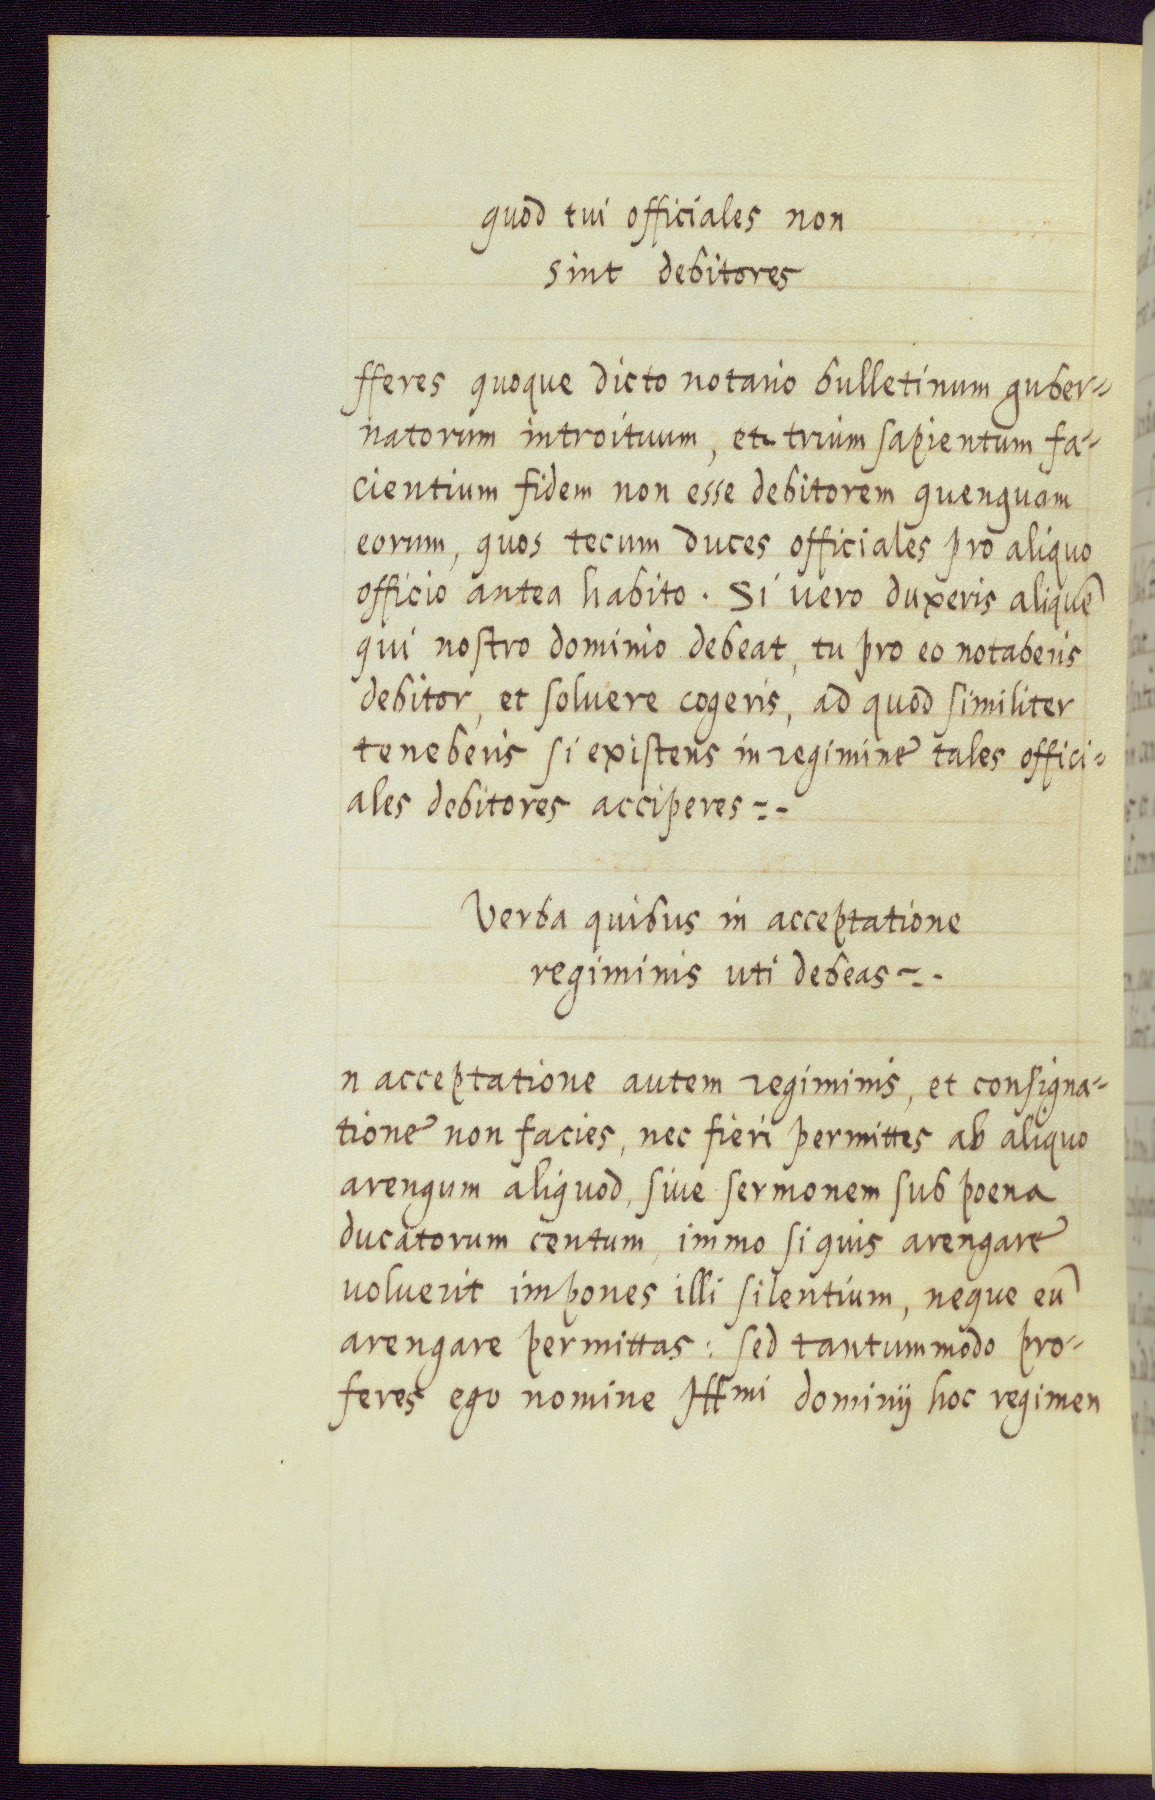 quod tui officiales non
sint debitores
fferes quoque dicto notario bulletinum guber=
natorum introituum, et trium sapientum fa=
cientium fidem non esse debitorem quenquam
eorum, quos tecum duces officiales pro aliquo
officio antea habito. Si uero duxeris aliquē
qui nostro dominio debeat, tu pro eo notaberis
debitor, et soluere cogeris, ad quod similiter
teneberis si existens in regimine tales offici=
ales debitores acciperes =-
Verba quibus in acceptatione
regiminis uti debeas =-
n acceptatione autem regiminis, et consigna=
tione non facies, nec fieri permittes ab aliquo
arengum aliquod, siue sermonem sub poena
ducatorum centum, immo si quis arengare
uoluerit impones illi silentium, neque eū
arengare permittas: sed tantummodo pro=
feres ego nomine Ill^mi dominij hoc regimen